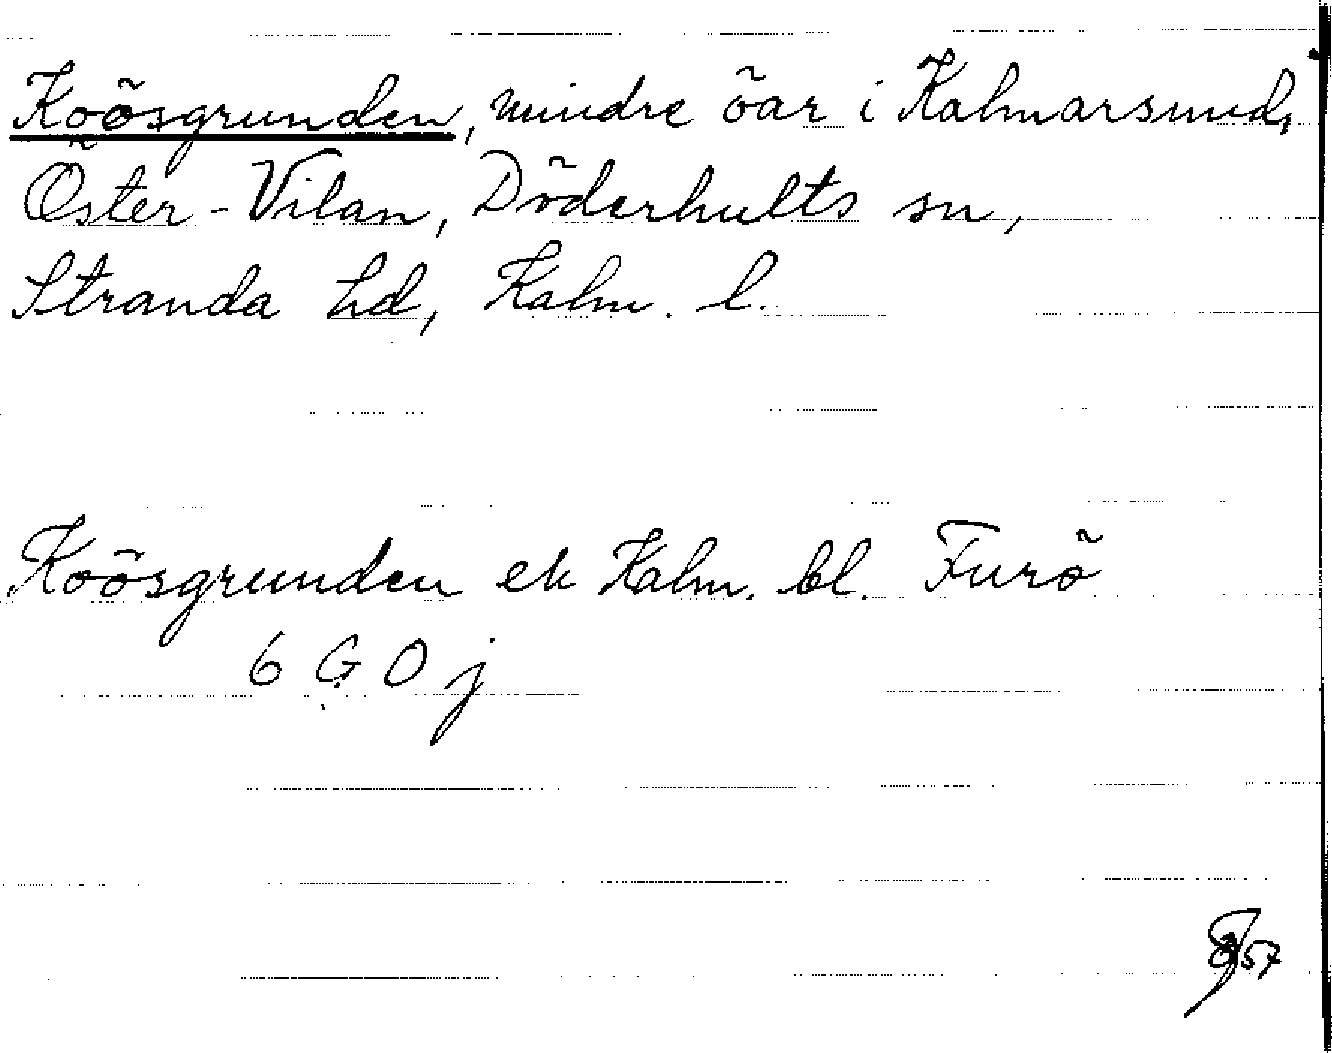 Koösgrunden, mindre öar i Kalmarsund,
Öster-Vilan, Döderhults sn,
Stranda hd, Kalm. l.
Koösgrunden ek Kalm. bl. Furö
6 G O j
57